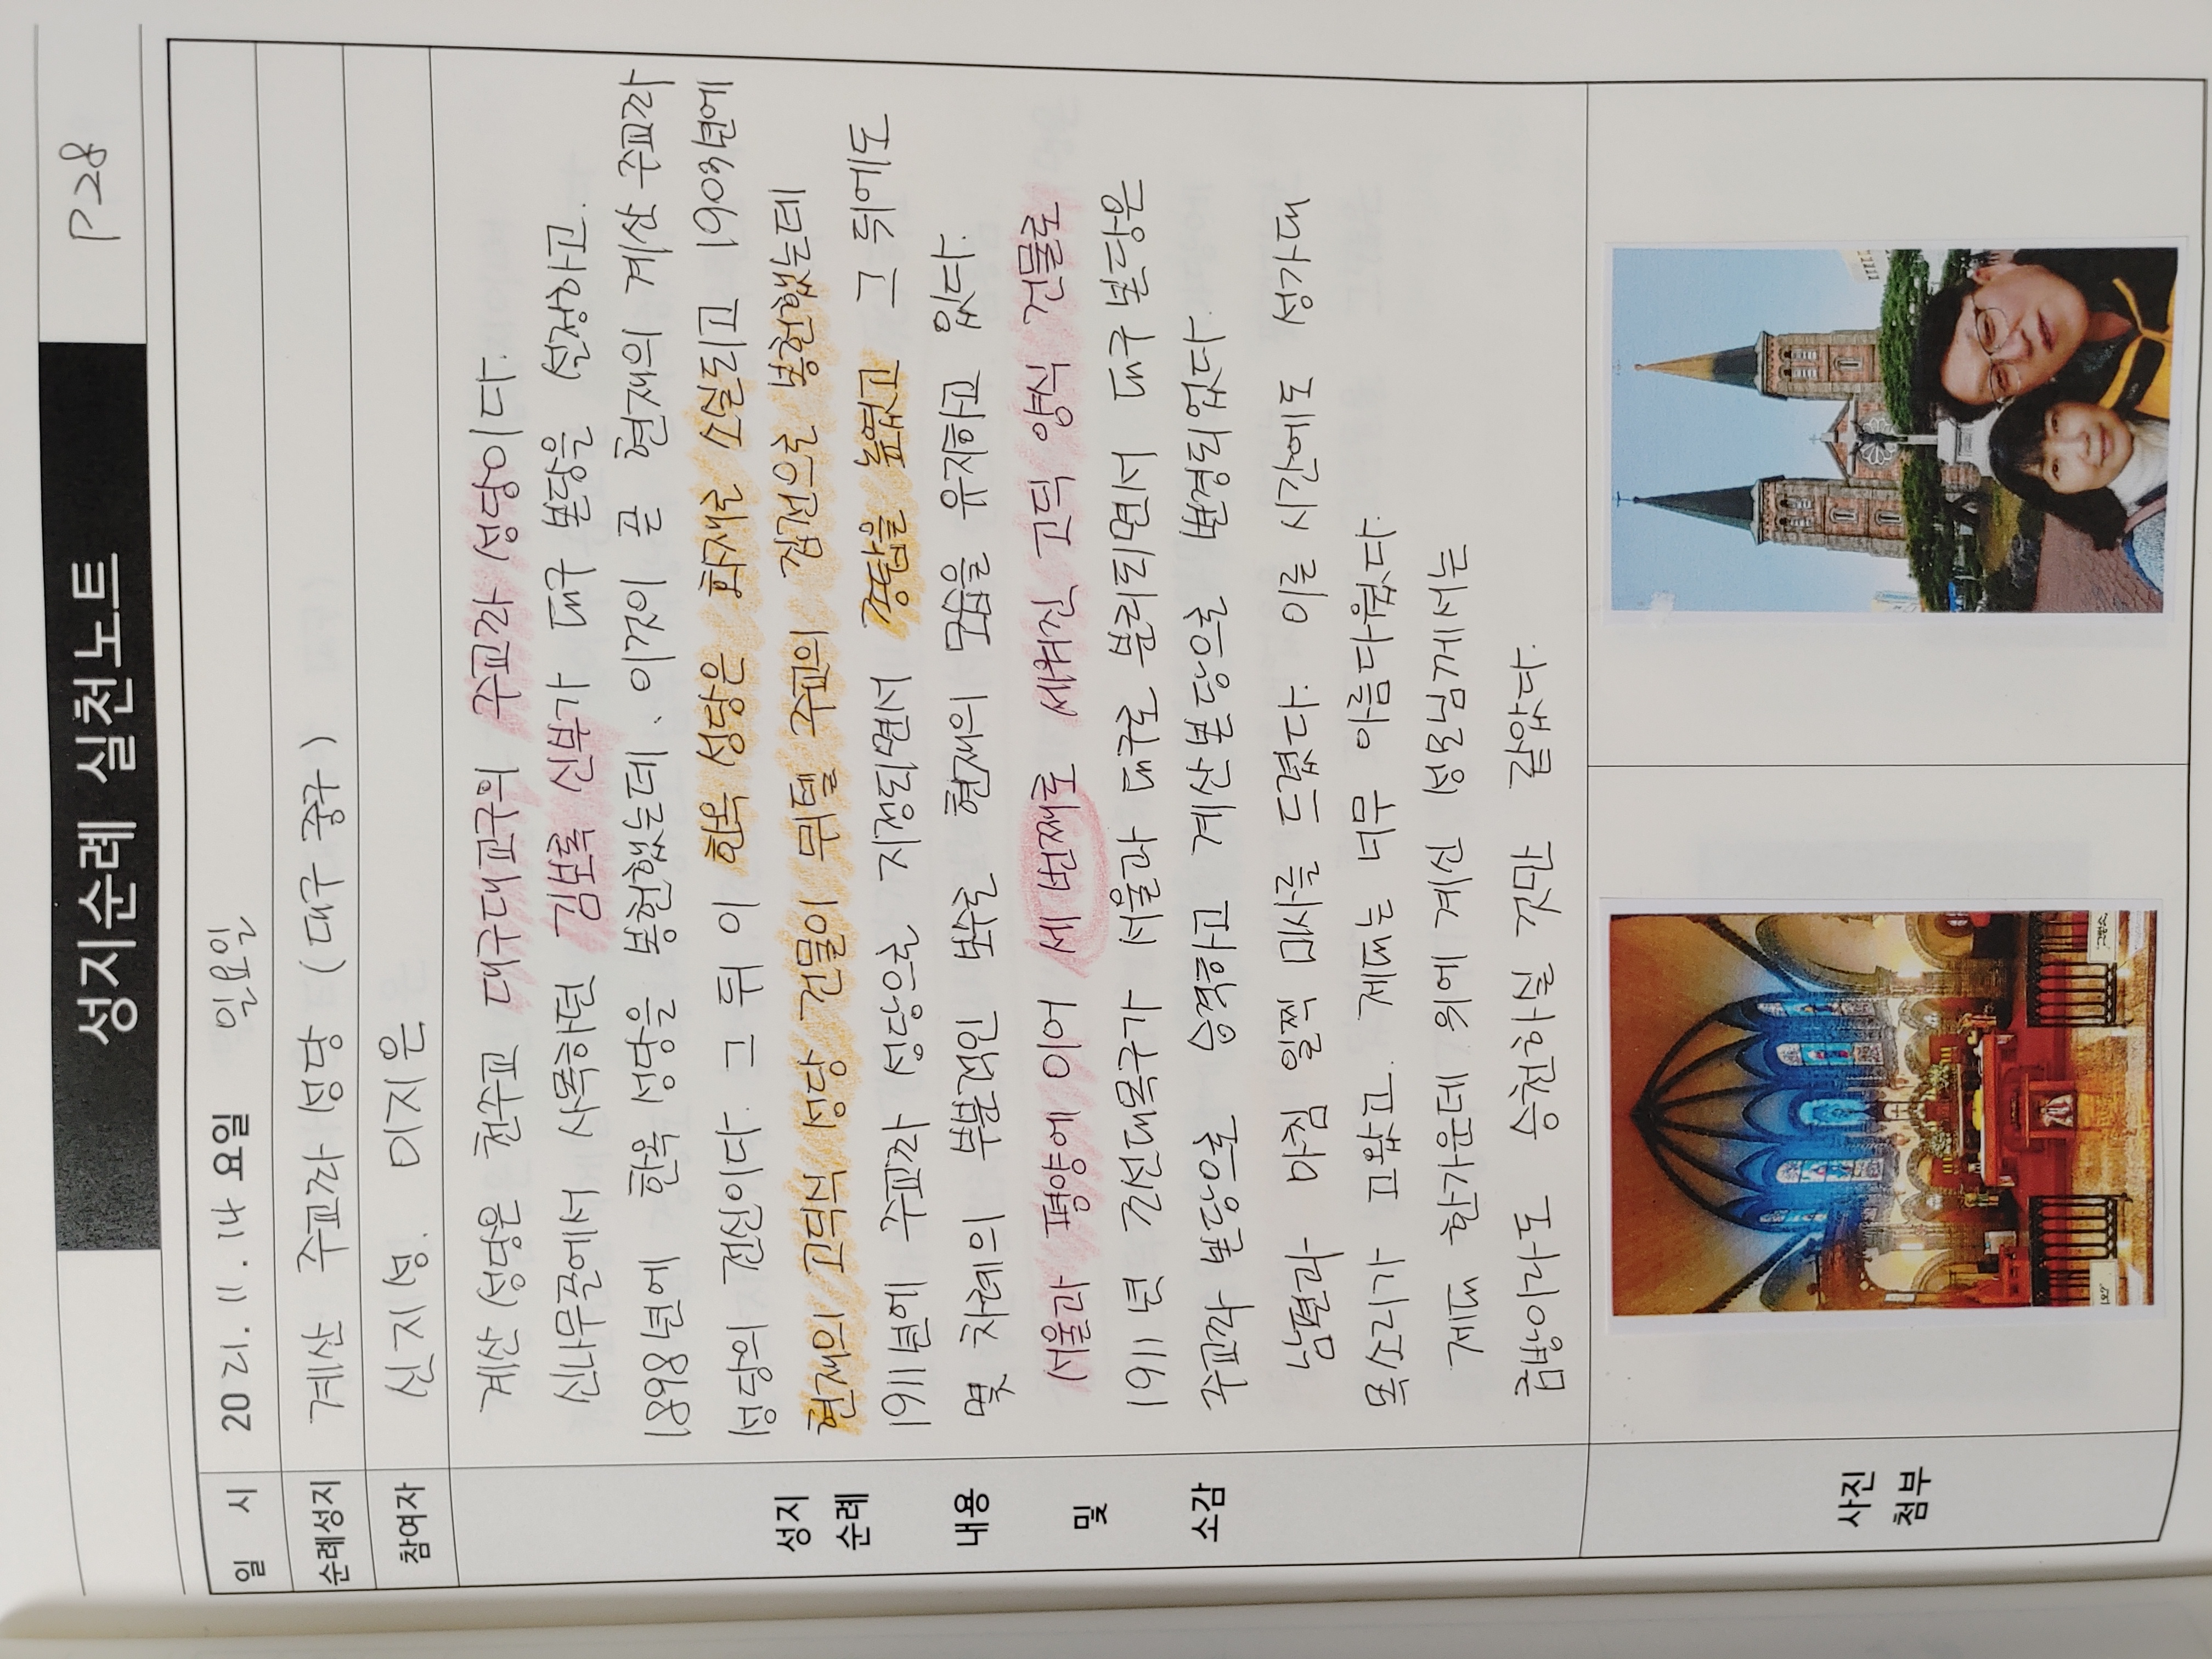 성지순례 실천노트
P28
일 시
2021. 11. 14 요일 일요일
순례성지
계산 주교좌 성당 (대구 중구)
참여자
신지성. 이지은
성지
순례
내용
및
소감
계산 성당은 천주교 대구대교구의 주교좌 성당이다.
신나무골에서 사목하던 김보록 신부가 대구 본당을 설정하고.
1898년에 한옥 성당을 봉헌했는데. 이것이 곧 현재의 계산 주교좌
성당의 전신이다. 그 뒤 이 한옥 성당은 화재로 소실되고 1903년에
현재의 고딕식 성당 건물이 뮈텔 주교의 집전으로 봉헌했는데
1911년에 주교좌 성당으로 지정되면서 종탑을 높였고 그 뒤에도
몇 차례의 부분적인 보수로 현재의 모습을 유지하고 있다.
서울과 평양에 이어 세 번째로 세워진 고딕 양식 건물로
1911년 조선대목구가 서울과 대구로 분리되면서 대구 본당은
주교좌 본당으로 승격하고 계산본당으로 변경되었다.
남편과 아침 일찍 미사를 드렸다. 이른 시간에도 성가대
목소리가 고왔고. 제대는 너무 아름다웠다.
제대 한가운데 위에 계신 성모님께서는
금방이라도 승천하실 것만 같았다.
사진
첨부